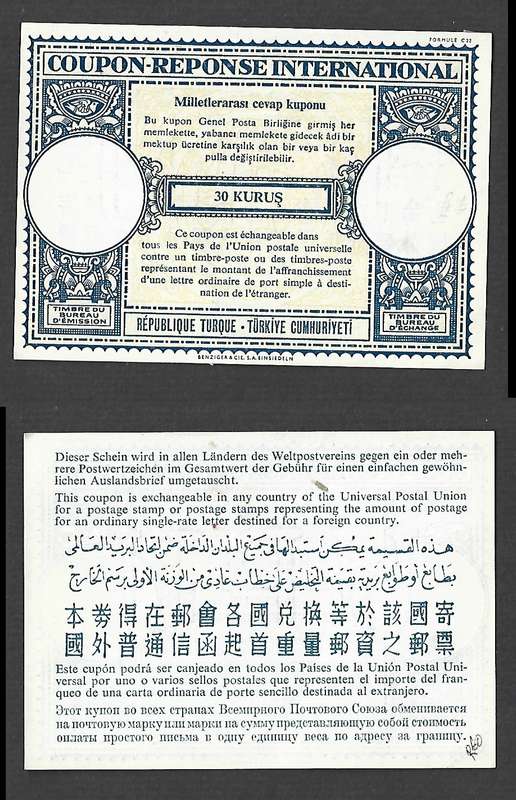 FORMULE C22
COUPON-REPONSE INTERNATIONAL
Milletlerarası cevap kuponu
Bu kupon Genel Posta Birliğine girmiş her
memlekette, yabancı memlekete gidecek âdi bir
mektup ücretine karşılık olan bir veya bir kaç
pulla değiştirilebilir.
30 KURUŞ
Ce coupon est échangeable dans
tous les Pays de l'Union postale universelle
contre un timbre-poste ou des timbres-poste
représentant le montant de l'affranchissement
d'une lettre ordinaire de port simple à desti-
nation de l'étranger.
TIMBRE DU
BUREAU
D'ÉMISSION
RÉPUBLIQUE TURQUE • TÜRKİYE CUMHURİYETİ
TIMBRE DU
BUREAU
D'ÉCHANGE
BENZIGER & CIE. S.A. EINSIEDELN
Dieser Schein wird in allen Ländern des Weltpostvereins gegen ein oder meh-
rere Postwertzeichen im Gesamtwert der Gebühr für einen einfachen gewöhn-
lichen Auslandsbrief umgetauscht.
This coupon is exchangeable in any country of the Universal Postal Union
for a postage stamp or postage stamps representing the amount of postage
for an ordinary single-rate letter destined for a foreign country.
هذه القسيمة يمكن استبدالها في جميع البلدان الداخلة ضمن اتحاد البريد العالمي
بطابع أو طوابع بريدية بقيمة التخليص على خطاب عادي من الوزنة الأولى برسم الخارج
本券得在郵會各國兌換等於該國寄
國外普通信函起首重量郵資之郵票
Este cupón podrá ser canjeado en todos los Países de la Unión Postal Uni-
versal por uno o varios sellos postales que representen el importe del fran-
queo de una carta ordinaria de porte sencillo destinada al extranjero.
Этот купон во всех странах Всемирного Почтового Союза обменивается
на почтовую марку или марки на сумму представляющую собой стоимость
оплаты простого письма в одну единицу веса по адресу за границу.